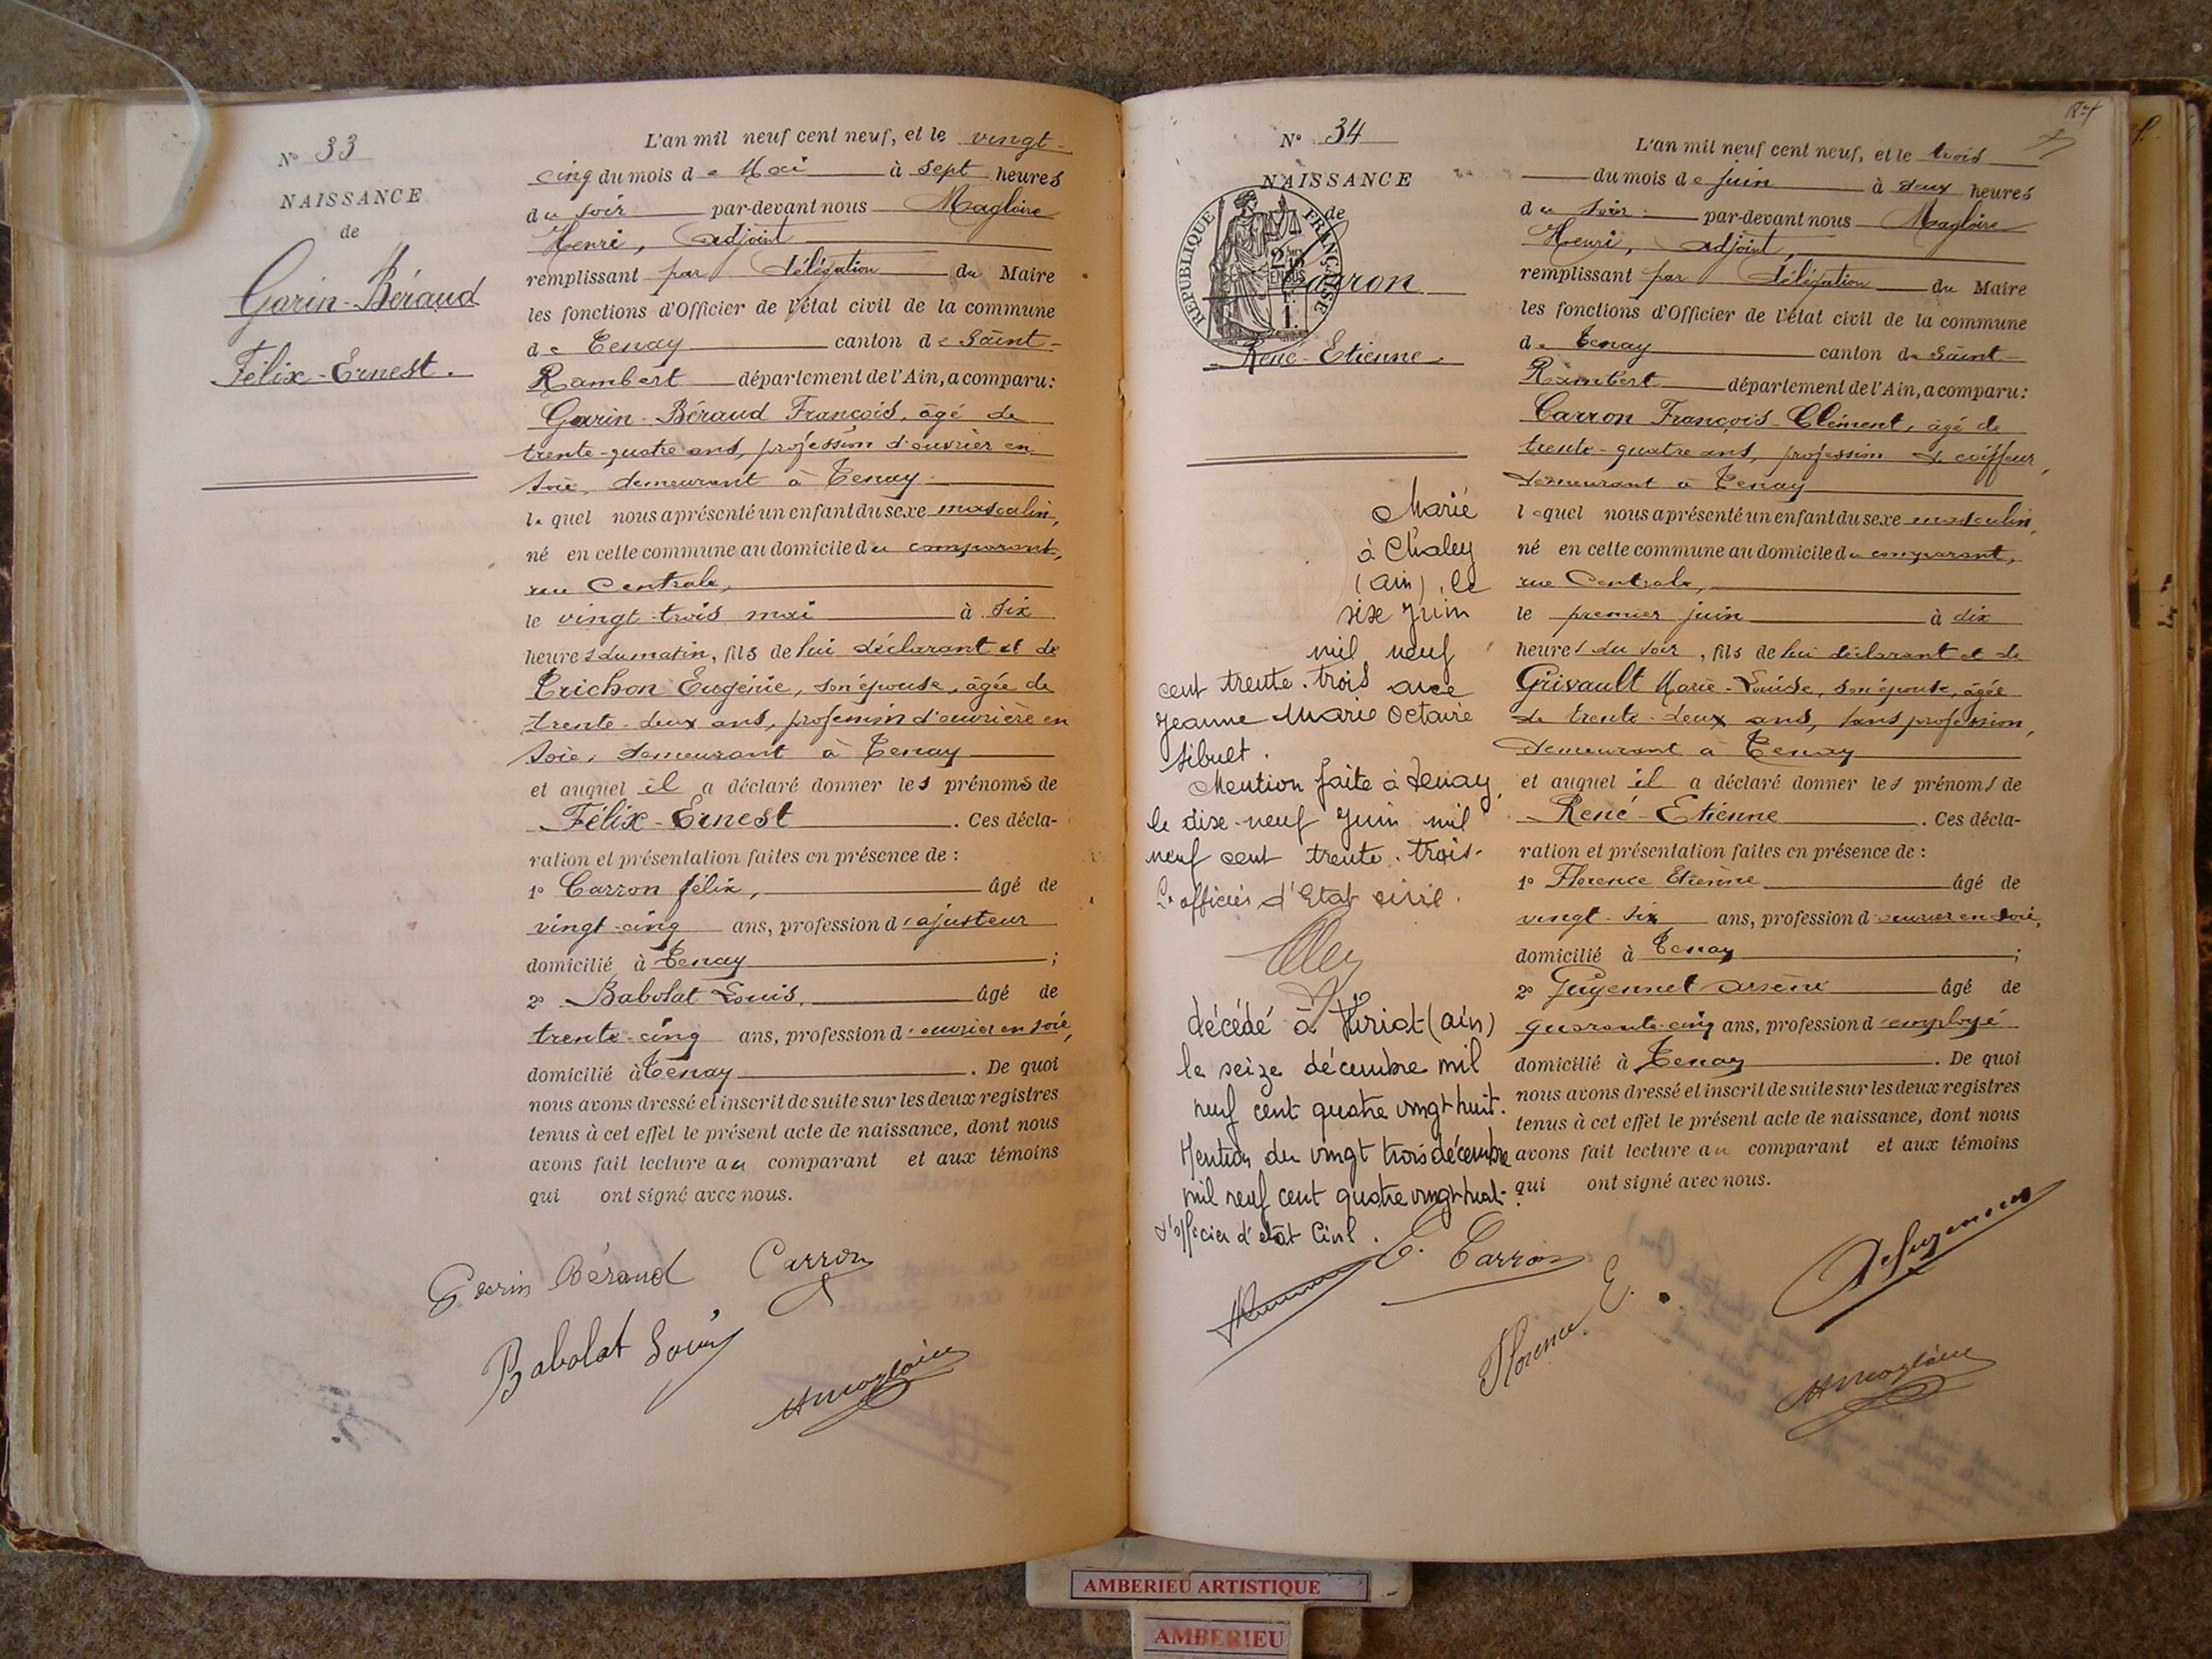 N° 33
NAISSANCE
de
Garin-Béraud
Félix-Ernest.
L'an mil neuf cent neuf, et le vingt-
cinq du mois de Mai à sept heures
du soir par-devant nous Magloire
Henri, adjoint
remplissant par délégation du Maire
les fonctions d'Officier de l'état civil de la commune
de Tenay canton de Saint-
Rambert département de l'Ain, a comparu:
Garin-Béraud François, âgé de
trente-quatre ans, profession d'ouvrier en
soie, demeurant à Tenay
lequel nous a présenté un enfant du sexe masculin,
né en cette commune au domicile du comparant,
rue Centrale,
le vingt-trois mai à six
heures du matin, fils de lui déclarant et de
Trichon Eugénie, son épouse, âgée de
trente-deux ans, profession d'ouvrière en
soie, demeurant à Tenay
et auquel il a déclaré donner les prénoms de
Félix-Ernest. Ces décla-
ration et présentation faites en présence de:
1° Carron félix, âgé de
vingt-cinq ans, profession d'ajusteur
domicilié à Tenay;
2° Babolat Louis, âgé de
trente-cinq ans, profession d'ouvrier en soie,
domicilié à Tenay. De quoi
nous avons dressé et inscrit de suite sur les deux registres
tenus à cet effet le présent acte de naissance, dont nous
avons fait lecture au comparant et aux témoins
qui ont signé avec nous.
Garin Béraud Carron
Babolat Louis
HMagloire
N° 34
NAISSANCE
de
RÉPUBLIQUE FRANÇAISE
Carron
René-Etienne
Marié
à Chaley
(Ain), le
six Juin
mil neuf
cent trente-trois avec
Jeanne Marie Octavie
Sibuet.
Mention faite à Tenay,
le dix-neuf Juin mil
neuf cent trente-trois-
L'officier d'Etat civil.
décédé à Viriat (ain)
le seize décembre mil
neuf cent quatre vingt huit.
Mention du vingt trois décembre
mil neuf cent quatre vingt huit-
L'officier d'état Civil.
L'an mil neuf cent neuf, et le trois
du mois de juin à deux heures
du soir par-devant nous Magloire
Henri, adjoint,
remplissant par délégation du Maire
les fonctions d'Officier de l'état civil de la commune
de Tenay canton de Saint-
Rambert département de l'Ain, a comparu:
Carron François-Clément, âgé de
trente-quatre ans, profession de coiffeur,
demeurant à Tenay
lequel nous a présenté un enfant du sexe masculin,
né en cette commune au domicile du comparant,
rue Centrale,
le premier juin à dix
heures du soir, fils de lui déclarant et de
Grivault Marie-Louise, son épouse, âgée
de trente-deux ans, sans profession,
demeurant à Tenay
et auquel il a déclaré donner les prénoms de
René-Etienne. Ces décla-
ration et présentation faites en présence de:
1° Florence Etienne âgé de
vingt-six ans, profession d'ouvrier en soie,
domicilié à Tenay;
2° Guyennet Arsène âgé de
quarante-cinq ans, profession d'employé
domicilié à Tenay. De quoi
nous avons dressé et inscrit de suite sur les deux registres
tenus à cet effet le présent acte de naissance, dont nous
avons fait lecture au comparant et aux témoins
qui ont signé avec nous.
C. Carron
Florence E.
HMagloire
AMBERIEU ARTISTIQUE
AMBERIEU